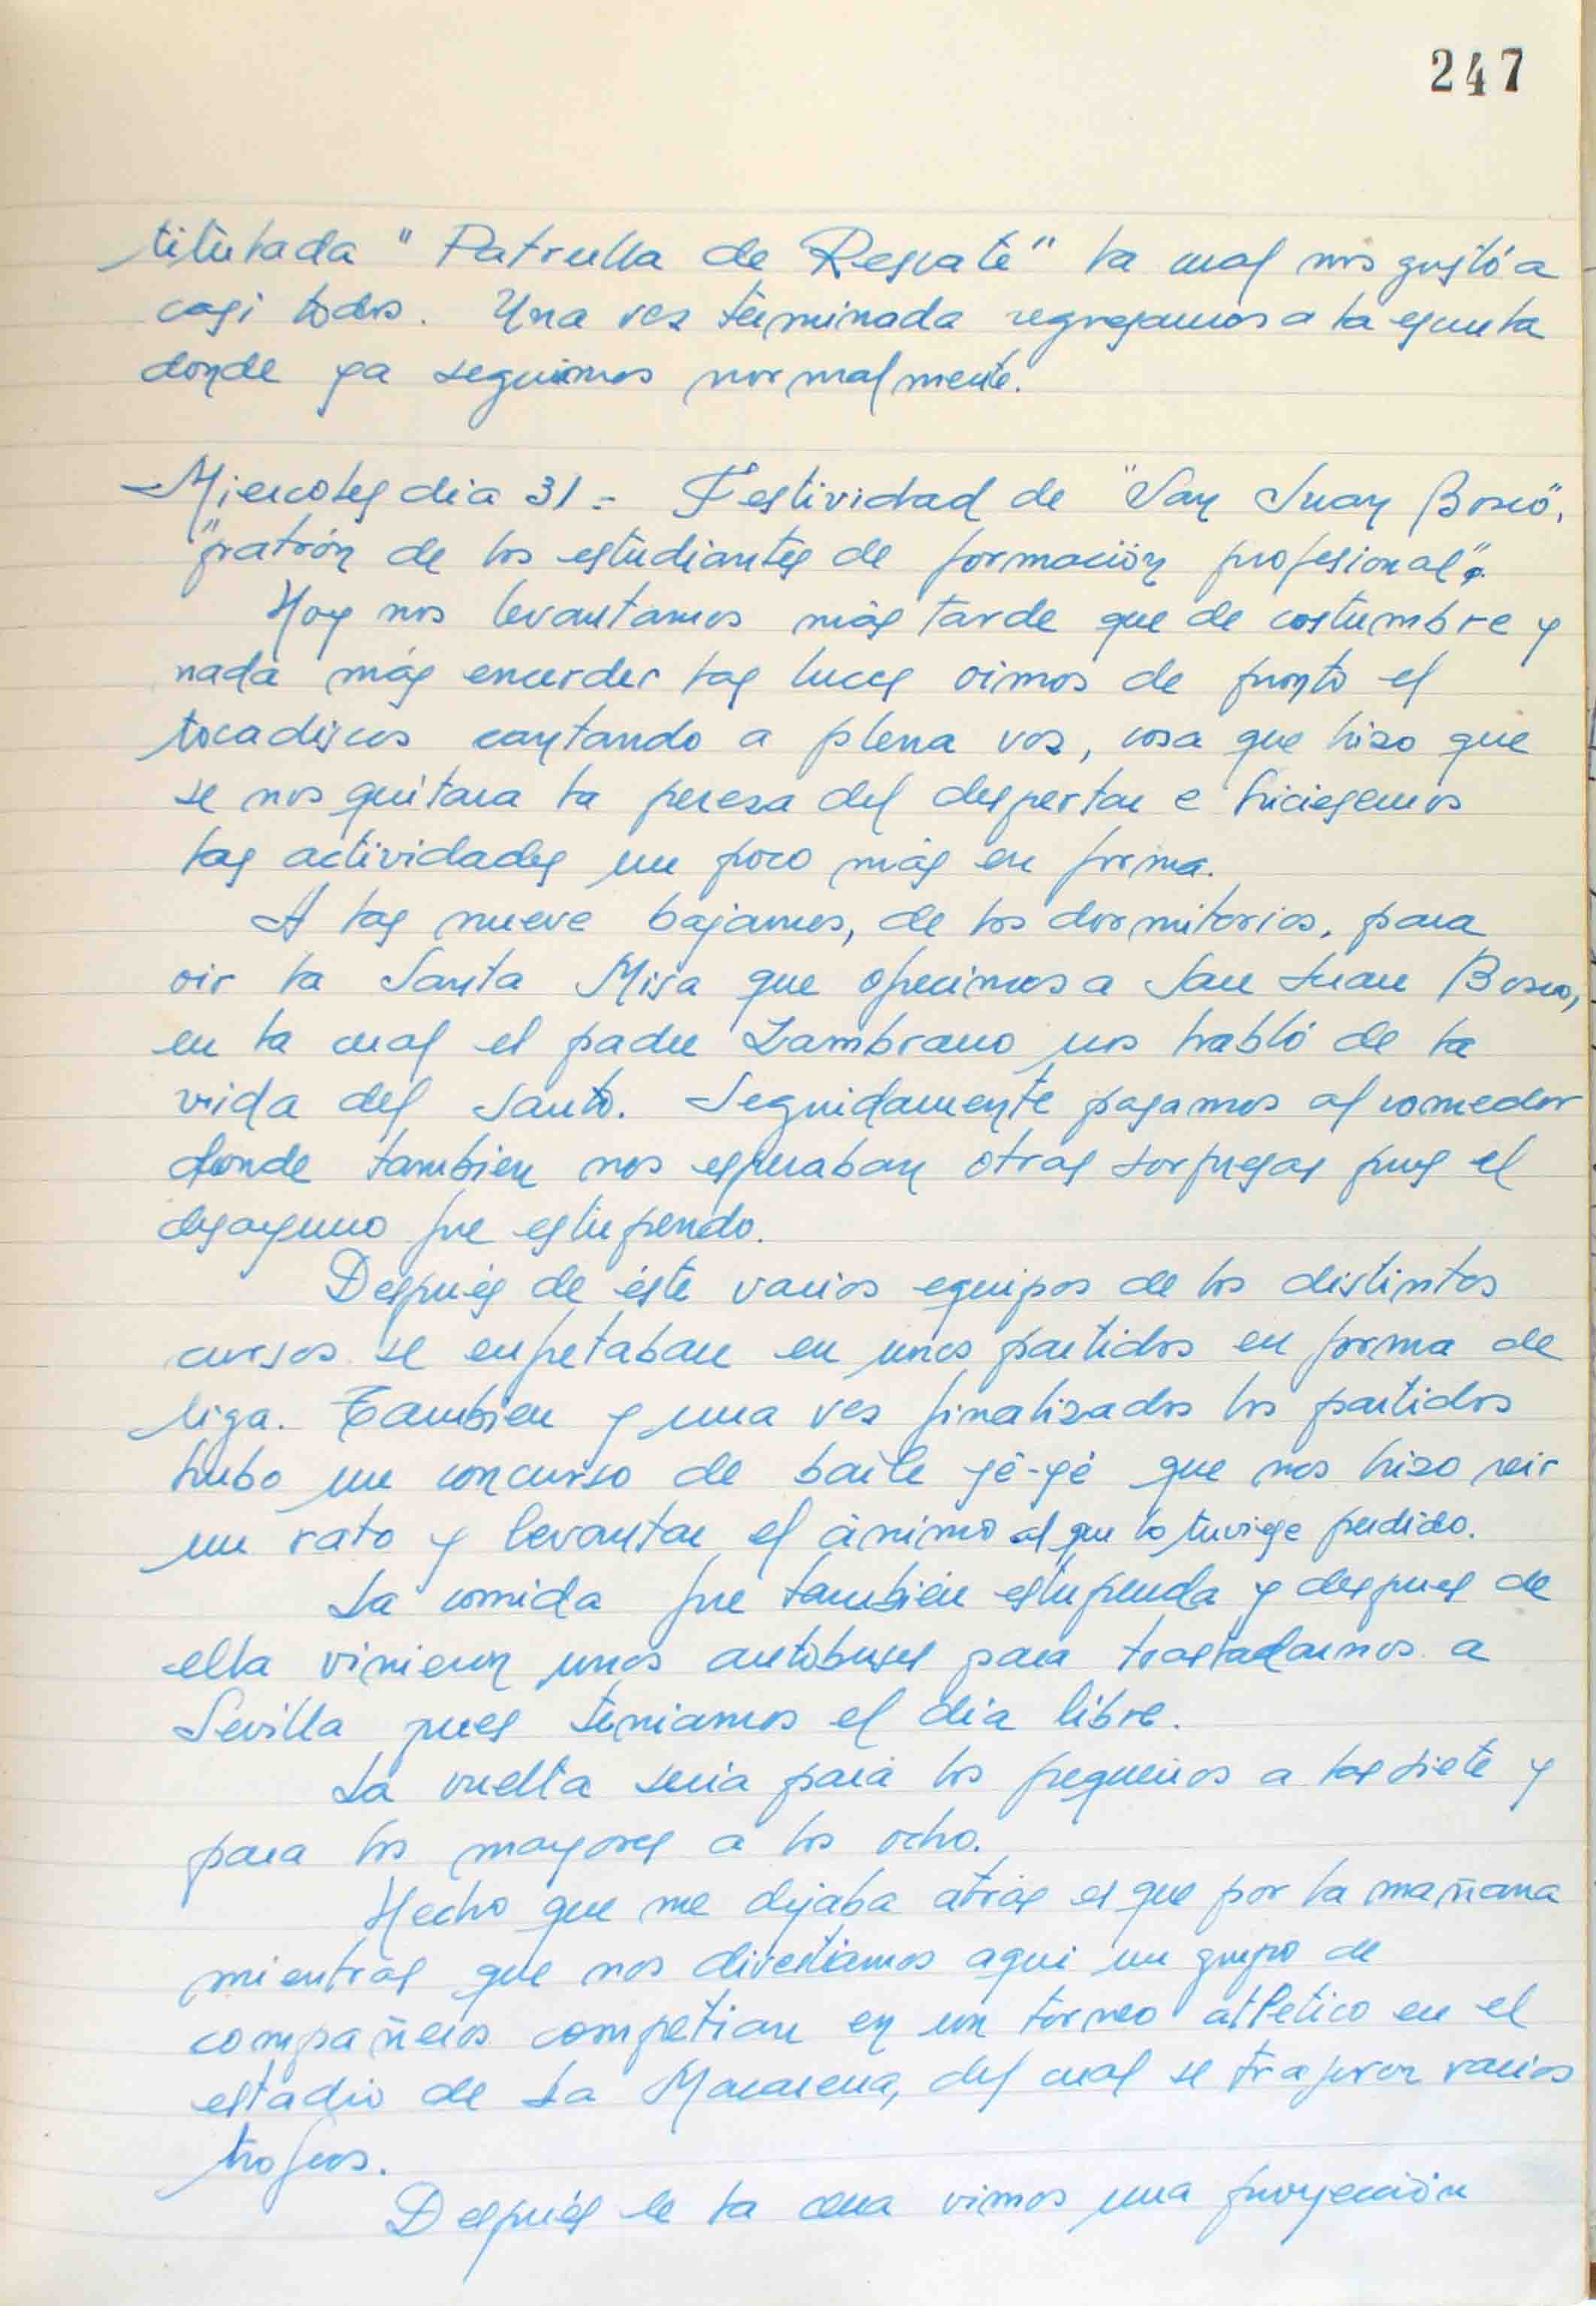 247
titulada "Patrulla de Rescate" la cual nos gustó a
casi todos. Una vez terminada regresamos a la escuela
donde ya seguimos normalmente.
Miercoles dia 31.- Festividad de "San Juan Bosco",
"patrón de los estudiantes de formación profesional".
Hoy nos levantamos más tarde que de costumbre y
nada más encender las luces oimos de pronto el
tocadiscos cantando a plena voz, cosa que hizo que
se nos quitara la pereza del despertar e hiciesemos
las actividades un poco más en forma.
A las nueve bajamos, de los dormitorios, para
oir la Santa Misa que ofrecimos a San Juan Bosco,
en la cual el padre Zambrano nos habló de la
vida del Santo. Seguidamente pasamos al comedor
donde tambien nos esperaban otras sorpresas pues el
desayuno fue estupendo.
Después de éste varios equipos de los distintos
cursos se enfretaban en unos partidos en forma de
liga. Tambien y una vez finalizados los partidos
hubo un concurso de baile yé-yé que nos hizo reir
un rato y levantar el ánimo al que lo tuviese perdido.
La comida fue también estupenda y despues de
ella vinieron unos autobuses para trasladarnos a
Sevilla pues teniamos el día libre.
La vuelta seria para los pequeños a las siete y
para los mayores a los ocho.
Hecho que me dejaba atrás es que por la mañana
mientras que nos divertiamos aqui un grupo de
compañeros competian en un torneo atletico en el
estadio de La Macarena, del cual se trajeron varios
trofeos.
Después de la cena vimos una proyección